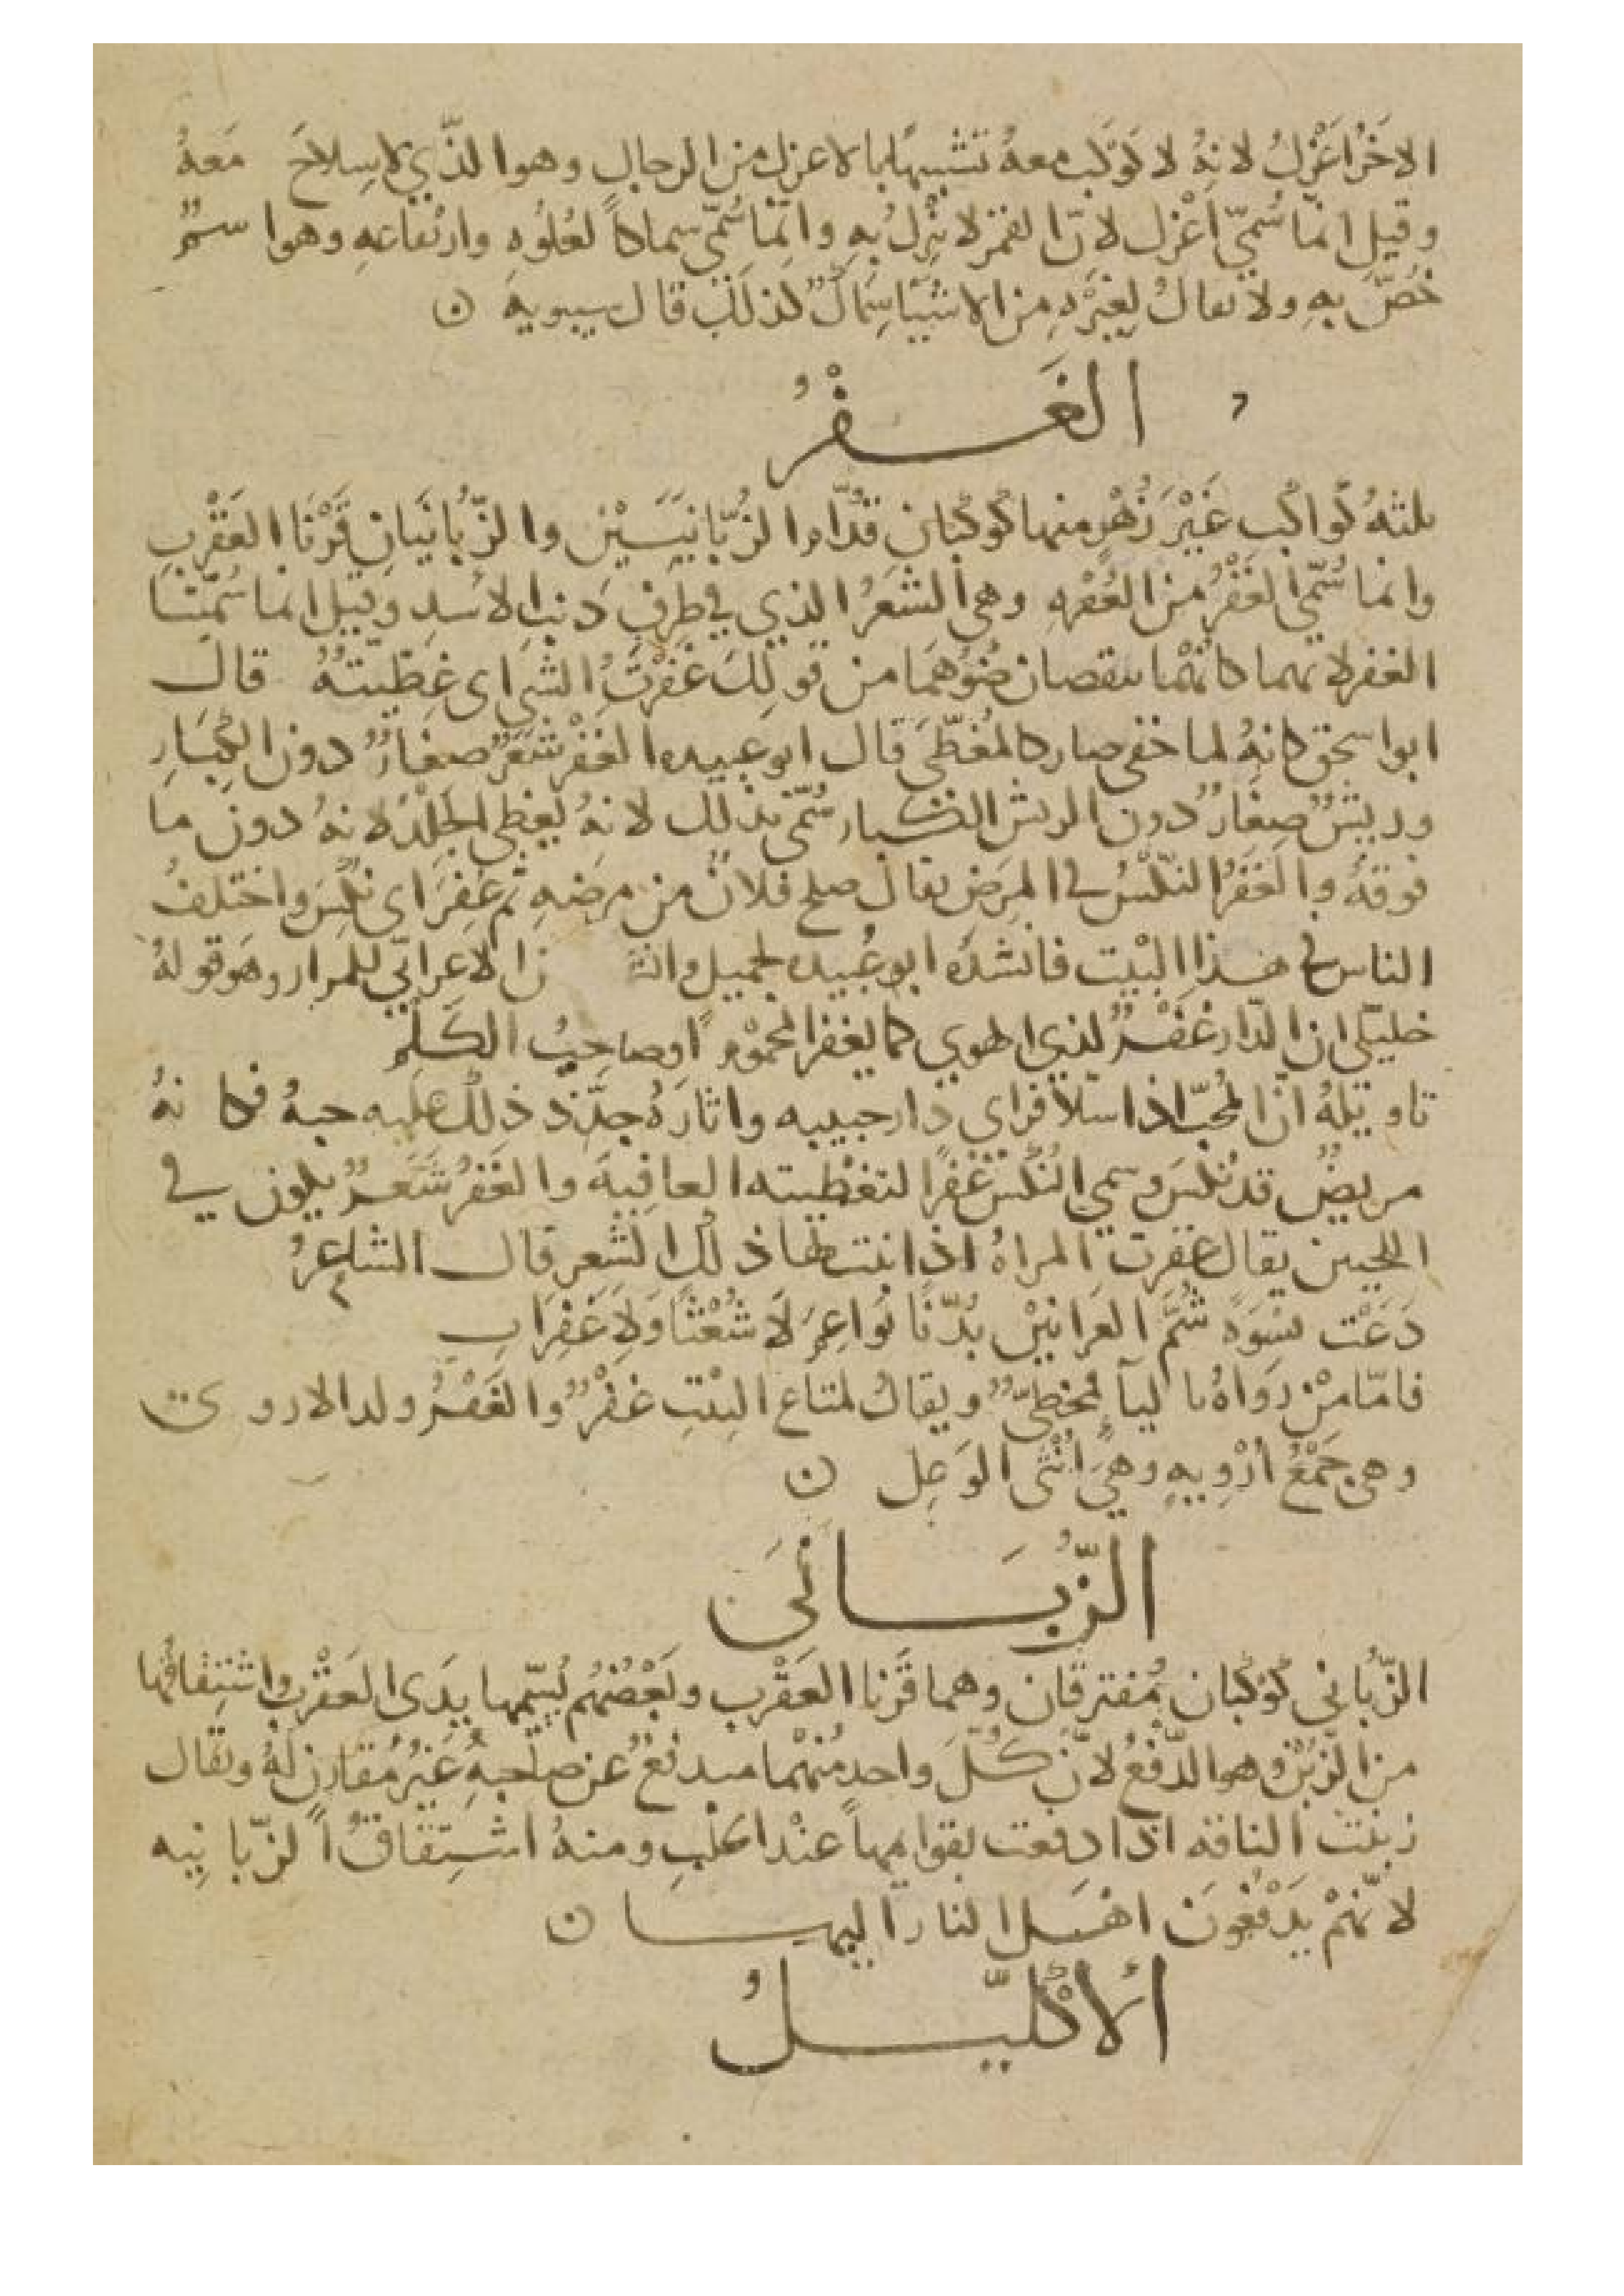 الاخَرُ اَعْزَلُ لانهُ لا كَوْكَب معهُ تشبيهًا بالاعزل من الرجال وهوا لذّي لا سِلاحَ مَعهُ
وقيل انمّا سُمّيَ اعْزل لانّ القمَرَ لا ينْزلُ بهِ وانّما سُمّيَ سِماكاً لعُلُوّهِ وارتفاعهِ وهوا سمٌ
خُصَّ بهِ ولا يقالُ لِغَيْرهِ من الاشيَا سِمَاكٌ كذلكَ قال سيبويهَ ن
الغَفْرُ
ثلثةُ كَواكب غَيْرَ زُهْرٍ منها كوكبَان قدَّام الزُبَّانيَيْن والزّبَانيَانِ قَرْنَا العَقْربِ
وانما سُمّيَ الغَفْرُ من الغُفْرهِ وهي الشعَرُ الذي في طرفِ ذنبِ الاسَدِ وقيل انما سُمّيَتا
الغفر لانهما كانهُما ينقصان ضوُهمَا من قولِكَ غَفَرْتُ الشي اى غطّيتهُ قال
ابوا سحق كانهُ لما خفى صار كالمُغطّىَ قال ابو عبيده الغَفْر شعَرٌ صغارٌ دون الكِبَارِ
وريشٌ صِغارٌ دون الريش الكبار سُمّى بذلك لانهُ يُغطى الجِلْدَ لانهُ دون ما
فوقهُ والغَفَرُ النّكْسُ في المَرضِ يقال صلح فلانٌ من مرضهِ ثم غفِرَ اى نُكِسَ واختلفَ
الناس في هذا البيْت فانشدهُ ابو عُبيده لجميل وانشد ان الاعرابّي للمرار وهو قولهُ
خليلّي ان الدّار غَفْرٌ لذي الهوي كما يغفرُ المحموْمُ او صاحِبُ الكَلْم
تاويلهُ انّ المُحبّ اذا سلا فراي دار حبيبه واثارَهُ جدّد ذلك عليه حبهُ فكا نهُ
مريضٌ قد نُكسَ وسمي النُكْس غَفْرًا لتغطيته العافِيهَ والغَفرُ شَعَرٌ يكون في
اللحيين يقال غفرت المراهُ اذا نبت لها ذلك الشعر قال الشاعرُ
دَعَتْ نسْوَة شُمَّ العَرانيْن بُدّنًا نَواعِمَ لاَ شُعْثًا وَلاَ غَفِرَاتِ
فامّا مَنْ رَواهُ بالياَ فمخطىّ ويقالُ لمتاع البيْتِ غفْرٌ والغَفْرُ ولد الاروى
وهي جَمْعُ ارْويهٍ وهيَ انْثَى الوَعِل ن
الزّبَانَى
الزّبَانى كوكبان مُفترقان وهما قَرنا العَقْرب وبَعْضهُم يُسمّيها يدَى العَقْرب واشتِقاقُها
من الزّبْن وهو الدّفْعُ لانّ كُلَّ واحدٍ منهُما مندفعٌ عن صاحبهِ غَيرُ مُقارنٍ لهُ ويقال
زبنت الناقه اذا دفعت بقوايمها عنْد الحلْب ومنهُ اشْتقاقُ الزّبانيه
لانّهُمْ يَدْفعُونَ اهْل النار اليها ن
الاكْليلُ